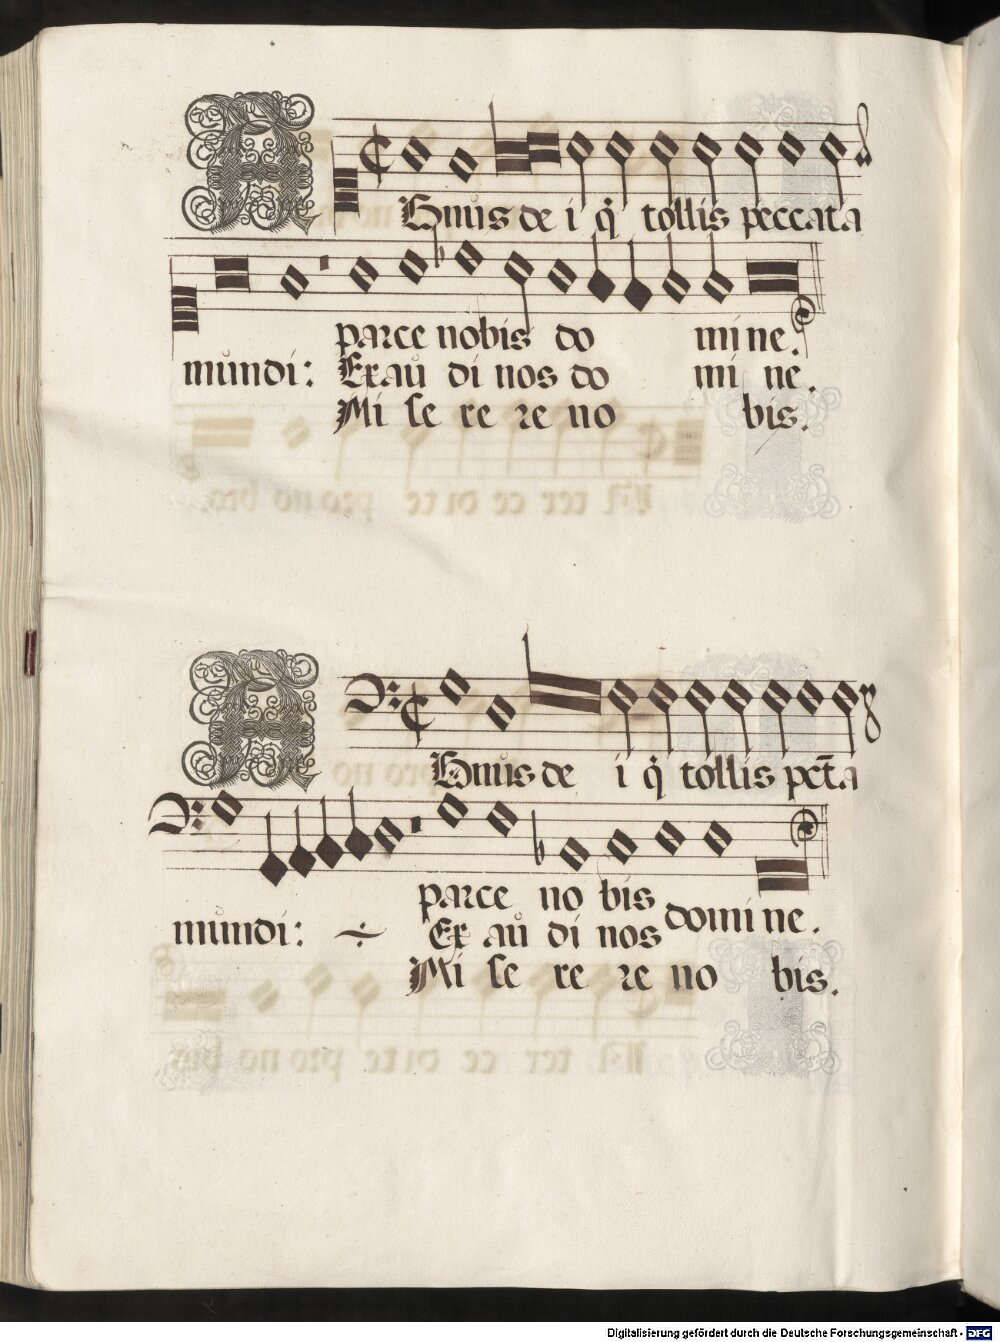 AGnus de i q̃ tollis peccata
parce nobis do mi ne.
mundi: Exau di nos do mi ne.
Mi se re re no bis.
AGnus de i q̃ tollis pct̃a
parce no bis
mundi: Ex au di nos domi ne.
Mi se re re no bis.
Digitalisierung gefördert durch die Deutsche Forschungsgemeinschaft - DFG